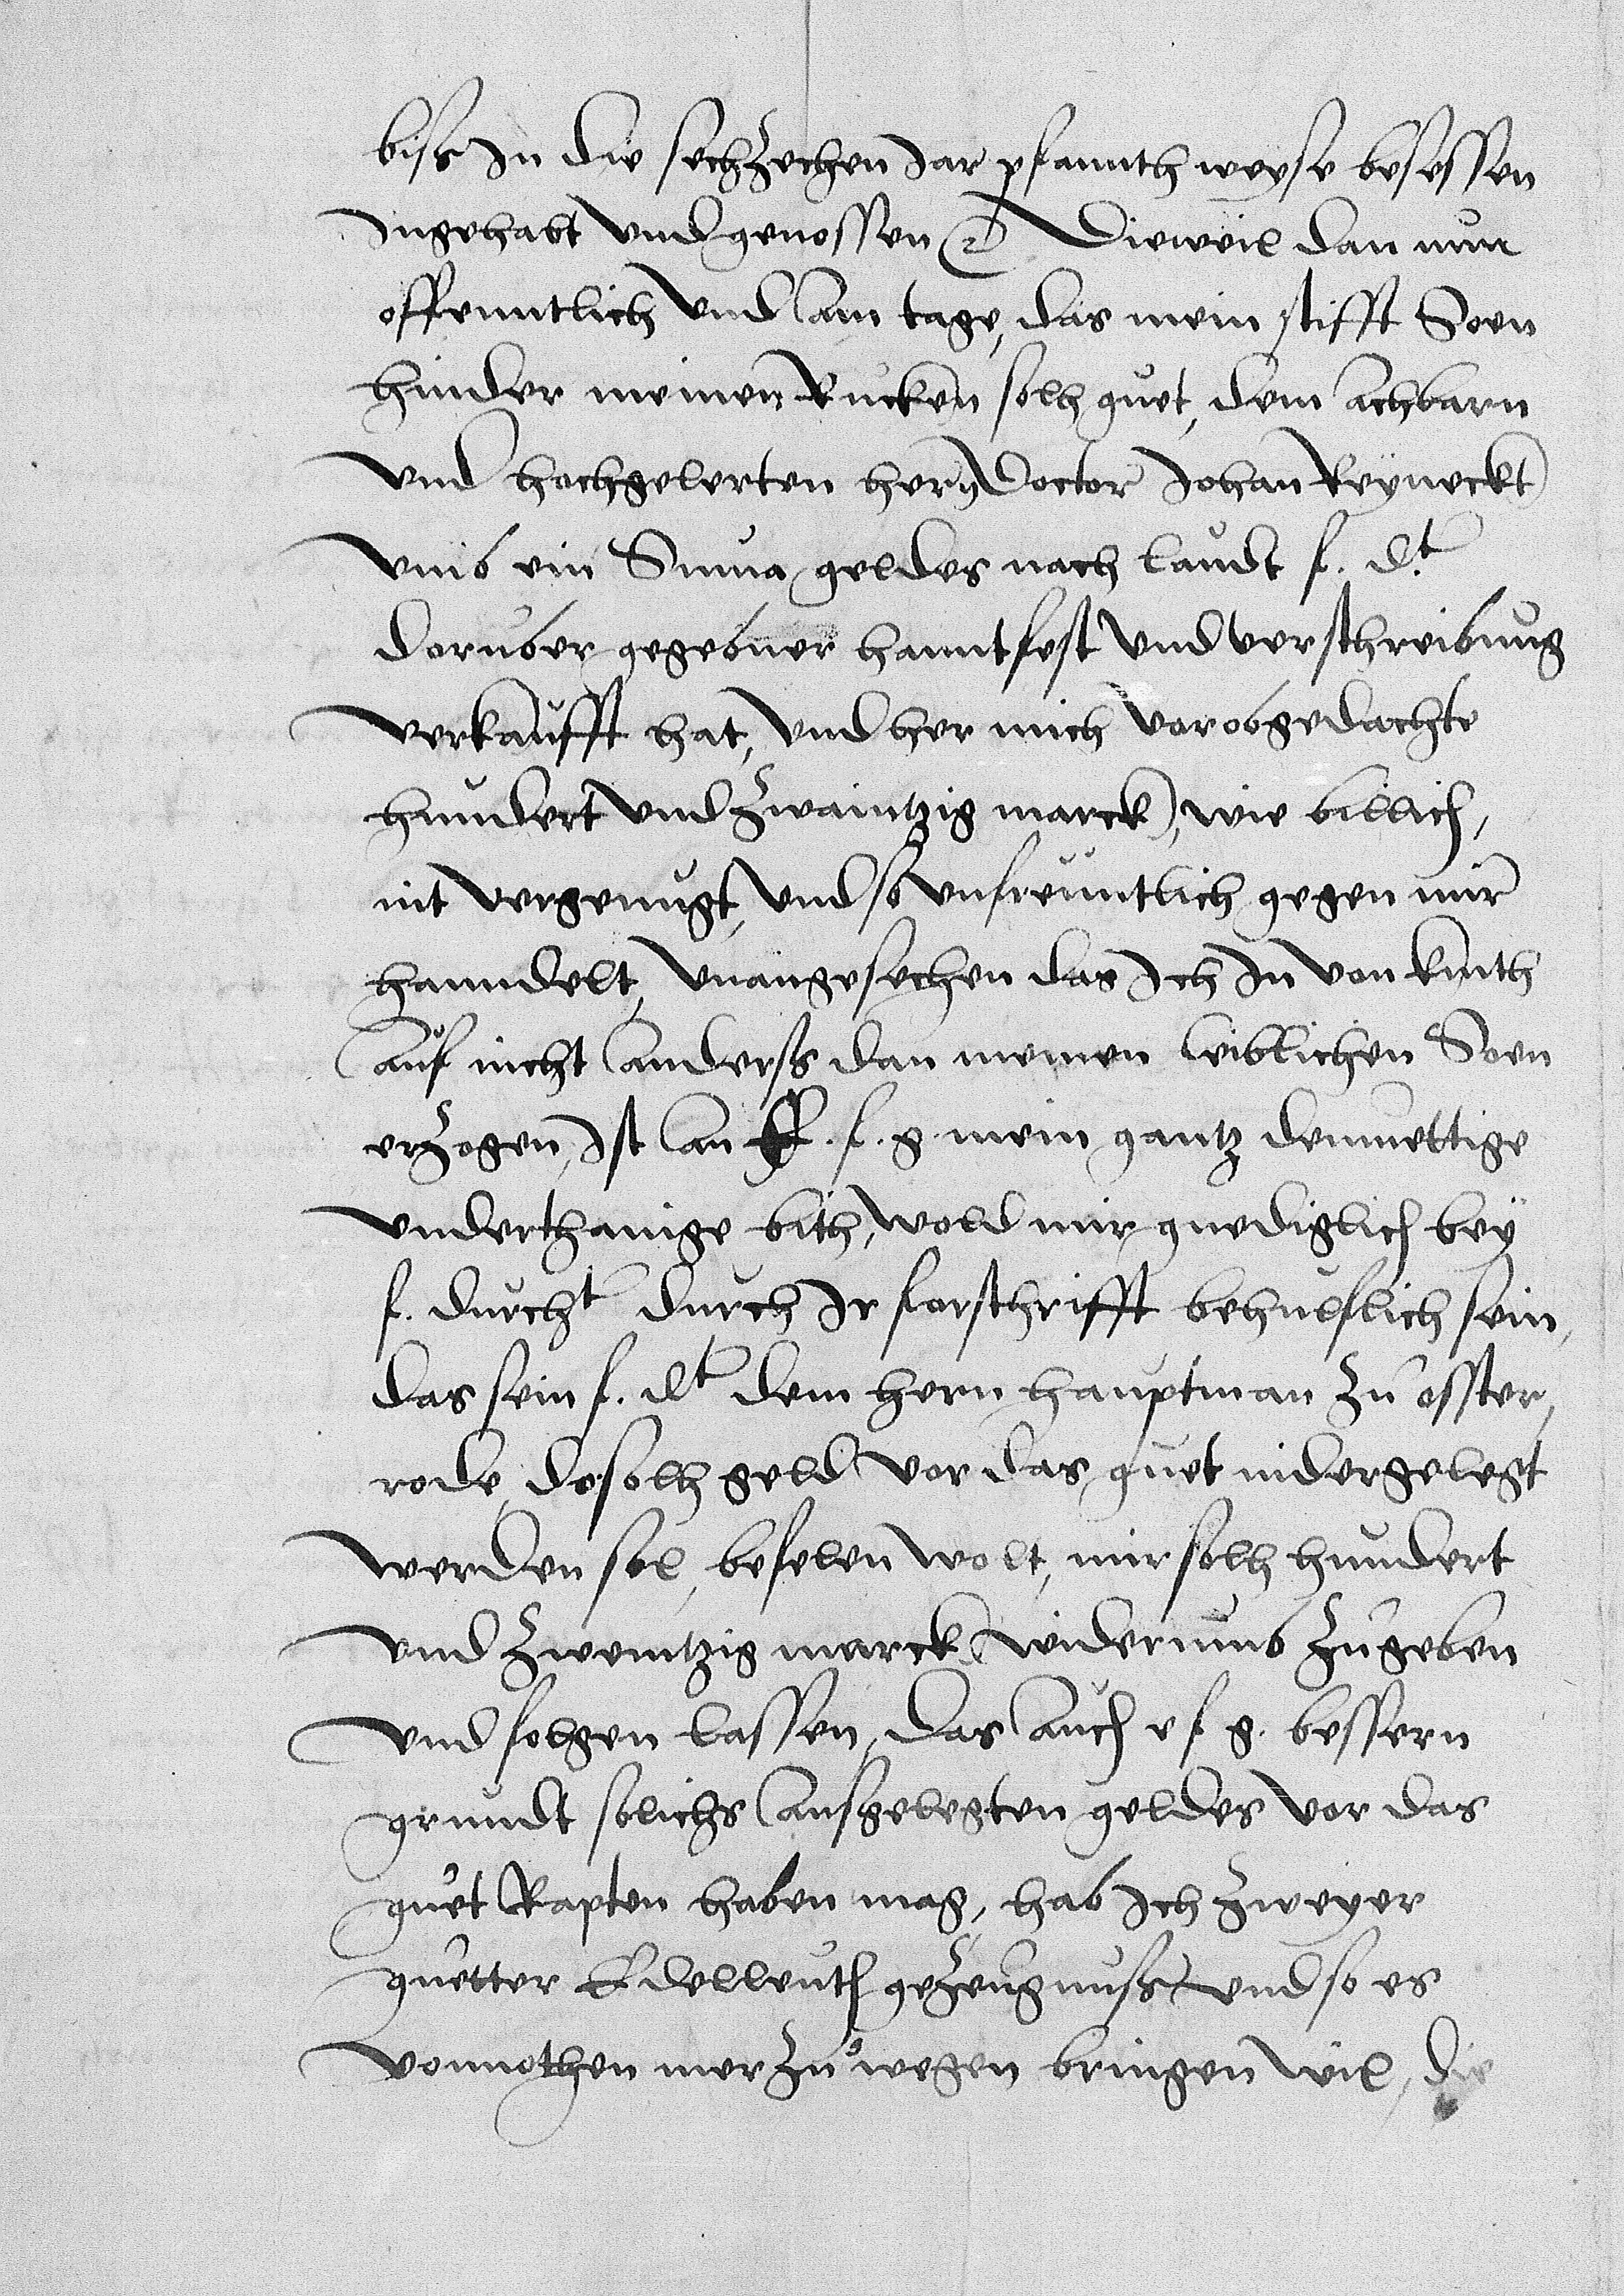 biss In die sechzechen Jar pfannth weyse besessen
Ingehabt vnd genossen Dieweil dan nun
offenntlich vnd am tage, das mein stifft Soen
hinder meinen Rucken solh guet, dem achbarn
vnd hochgelerten hern Doctor Johan Reyneckt
vmb ein Suma geldes nach laudt f. d.t
doruber gegebner hanntfest vnd verschreibung
verkaufft hat, vnd her mich vor obgedachte
hundert vnd Zwaintzig marck, wie billich,
nit vergenugt, vnd so vnfreuntlich gegen mir
hanndelt, vnangesechen das Ich In von kinth
auf nicht anderss dan meinen leiblichen Soen
erzogen, Ist an E. f. g. mein gantz demuettige
vnderthanige bith, wold mir gnediglich bey
f. durcht durch Ir forschrifft behulflich sein,
das sein f. dt dem hern hauptman zu osster,
rode, do solh geld vor das guet nidergelegt
werden sol, befelen wolt, mir solh hundert
vnd zwentzig marck widerumb zugeben
vnd folgen lassen, das auch e f g. bessern
grundt solichs aussgelegten geldes vor das
guet Rapten haben mag, hab Ich zweyer
guetter Edelleuth gezeugnuss vnd so es
vonnothen mer zu wegen bringen wil, die